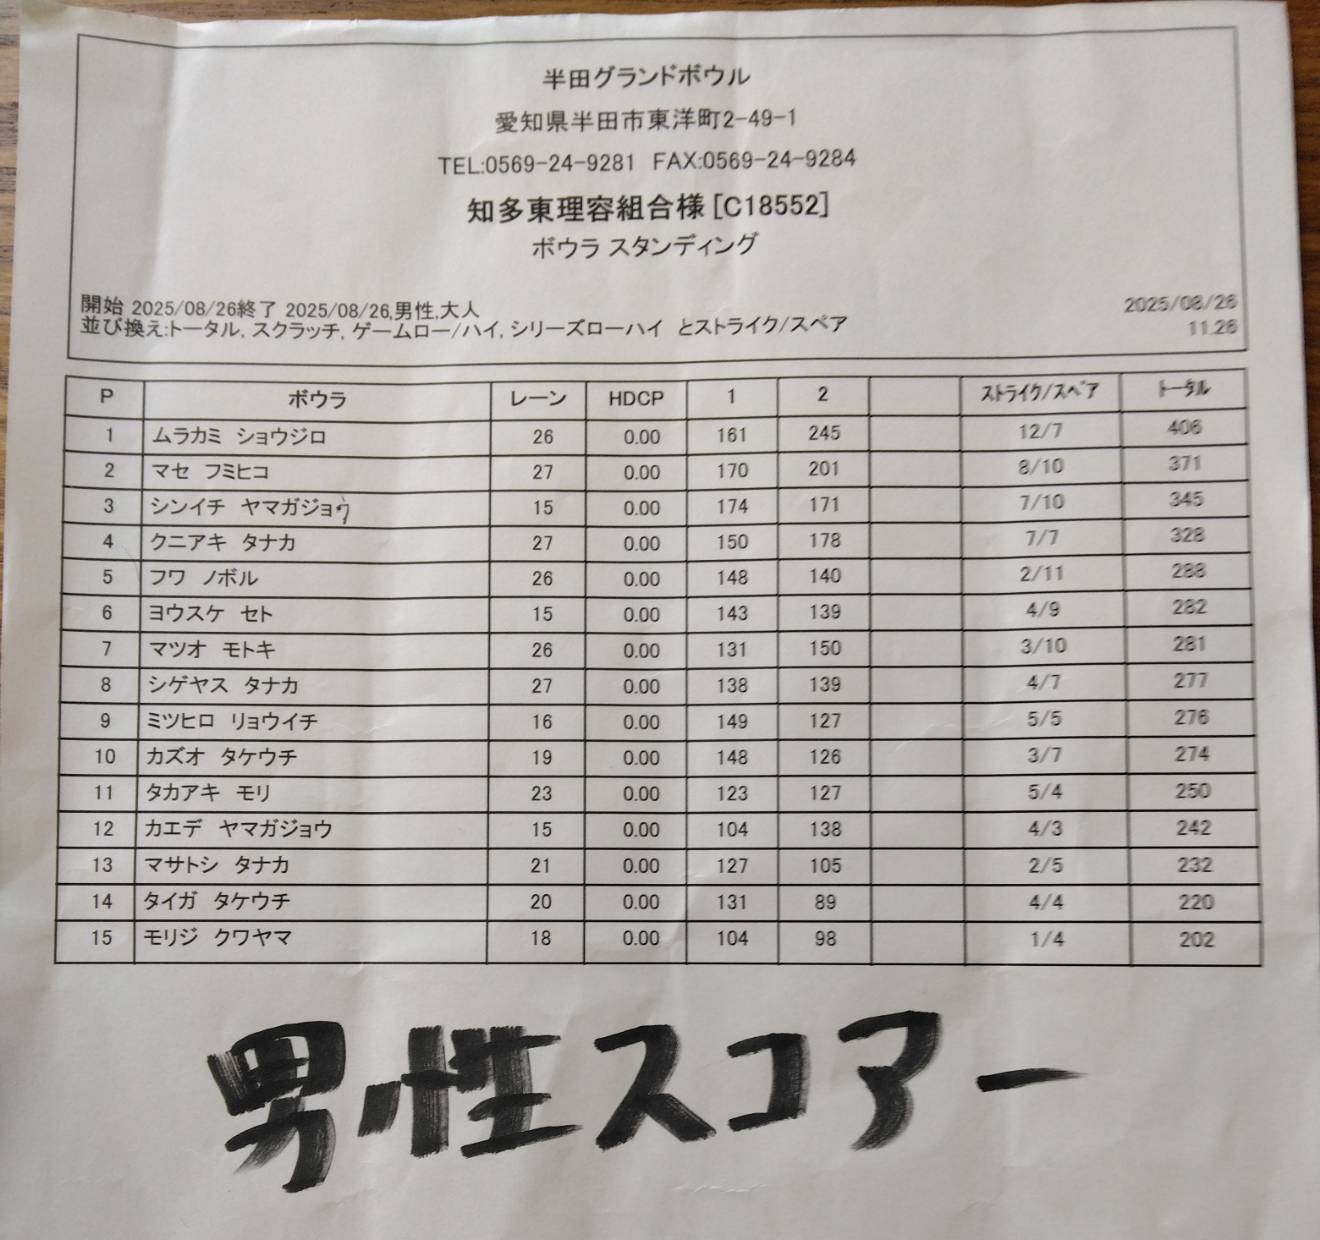 半田グランドボウル
愛知県半田市東洋町2-49-1
TEL:0569-24-9281 FAX:0569-24-9284
知多東理容組合様[C18552]
ボウラ スタンディング
開始 2025/08/26終了 2025/08/26,男性,大人 2025/08/26
並び換え:トータル, スクラッチ, ゲームロー/ハイ, シリーズローハイ とストライク/スペア 11.26
P ボウラ レーン HDCP 1 2 ストライク/スペア トータル
1 ムラカミ ショウジロ 26 0.00 161 245 12/7 406
2 マセ フミヒコ 27 0.00 170 201 8/10 371
3 シンイチ ヤマガジョウ 15 0.00 174 171 7/10 345
4 クニアキ タナカ 27 0.00 150 178 7/7 328
5 フワ ノボル 26 0.00 148 140 2/11 288
6 ヨウスケ セト 15 0.00 143 139 4/9 282
7 マツオ モトキ 26 0.00 131 150 3/10 281
8 シゲヤス タナカ 27 0.00 138 139 4/7 277
9 ミツヒロ リョウイチ 16 0.00 149 127 5/5 276
10 カズオ タケウチ 19 0.00 148 126 3/7 274
11 タカアキ モリ 23 0.00 123 127 5/4 250
12 カエデ ヤマガジョウ 15 0.00 104 138 4/3 242
13 マサトシ タナカ 21 0.00 127 105 2/5 232
14 タイガ タケウチ 20 0.00 131 89 4/4 220
15 モリジ クワヤマ 18 0.00 104 98 1/4 202
男性スコアー